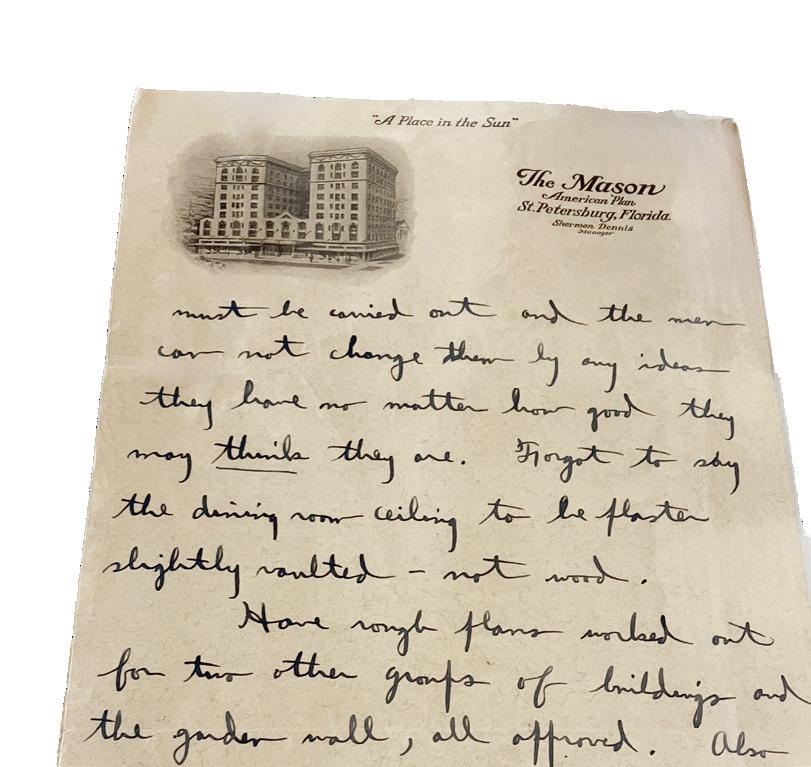 "A Place in the Sun"
The Mason
American Plan
St. Petersburg, Florida.
Sherman Dennis
Manager
must be carried out and the men
can not change them by any ideas
they have no matter how good they
may think they are. Forgot to say
the dining room ceiling to be plaster
slightly vaulted - not wood.
Have rough plans worked out
for two other groups of buildings and
the garden wall, all approved. Also